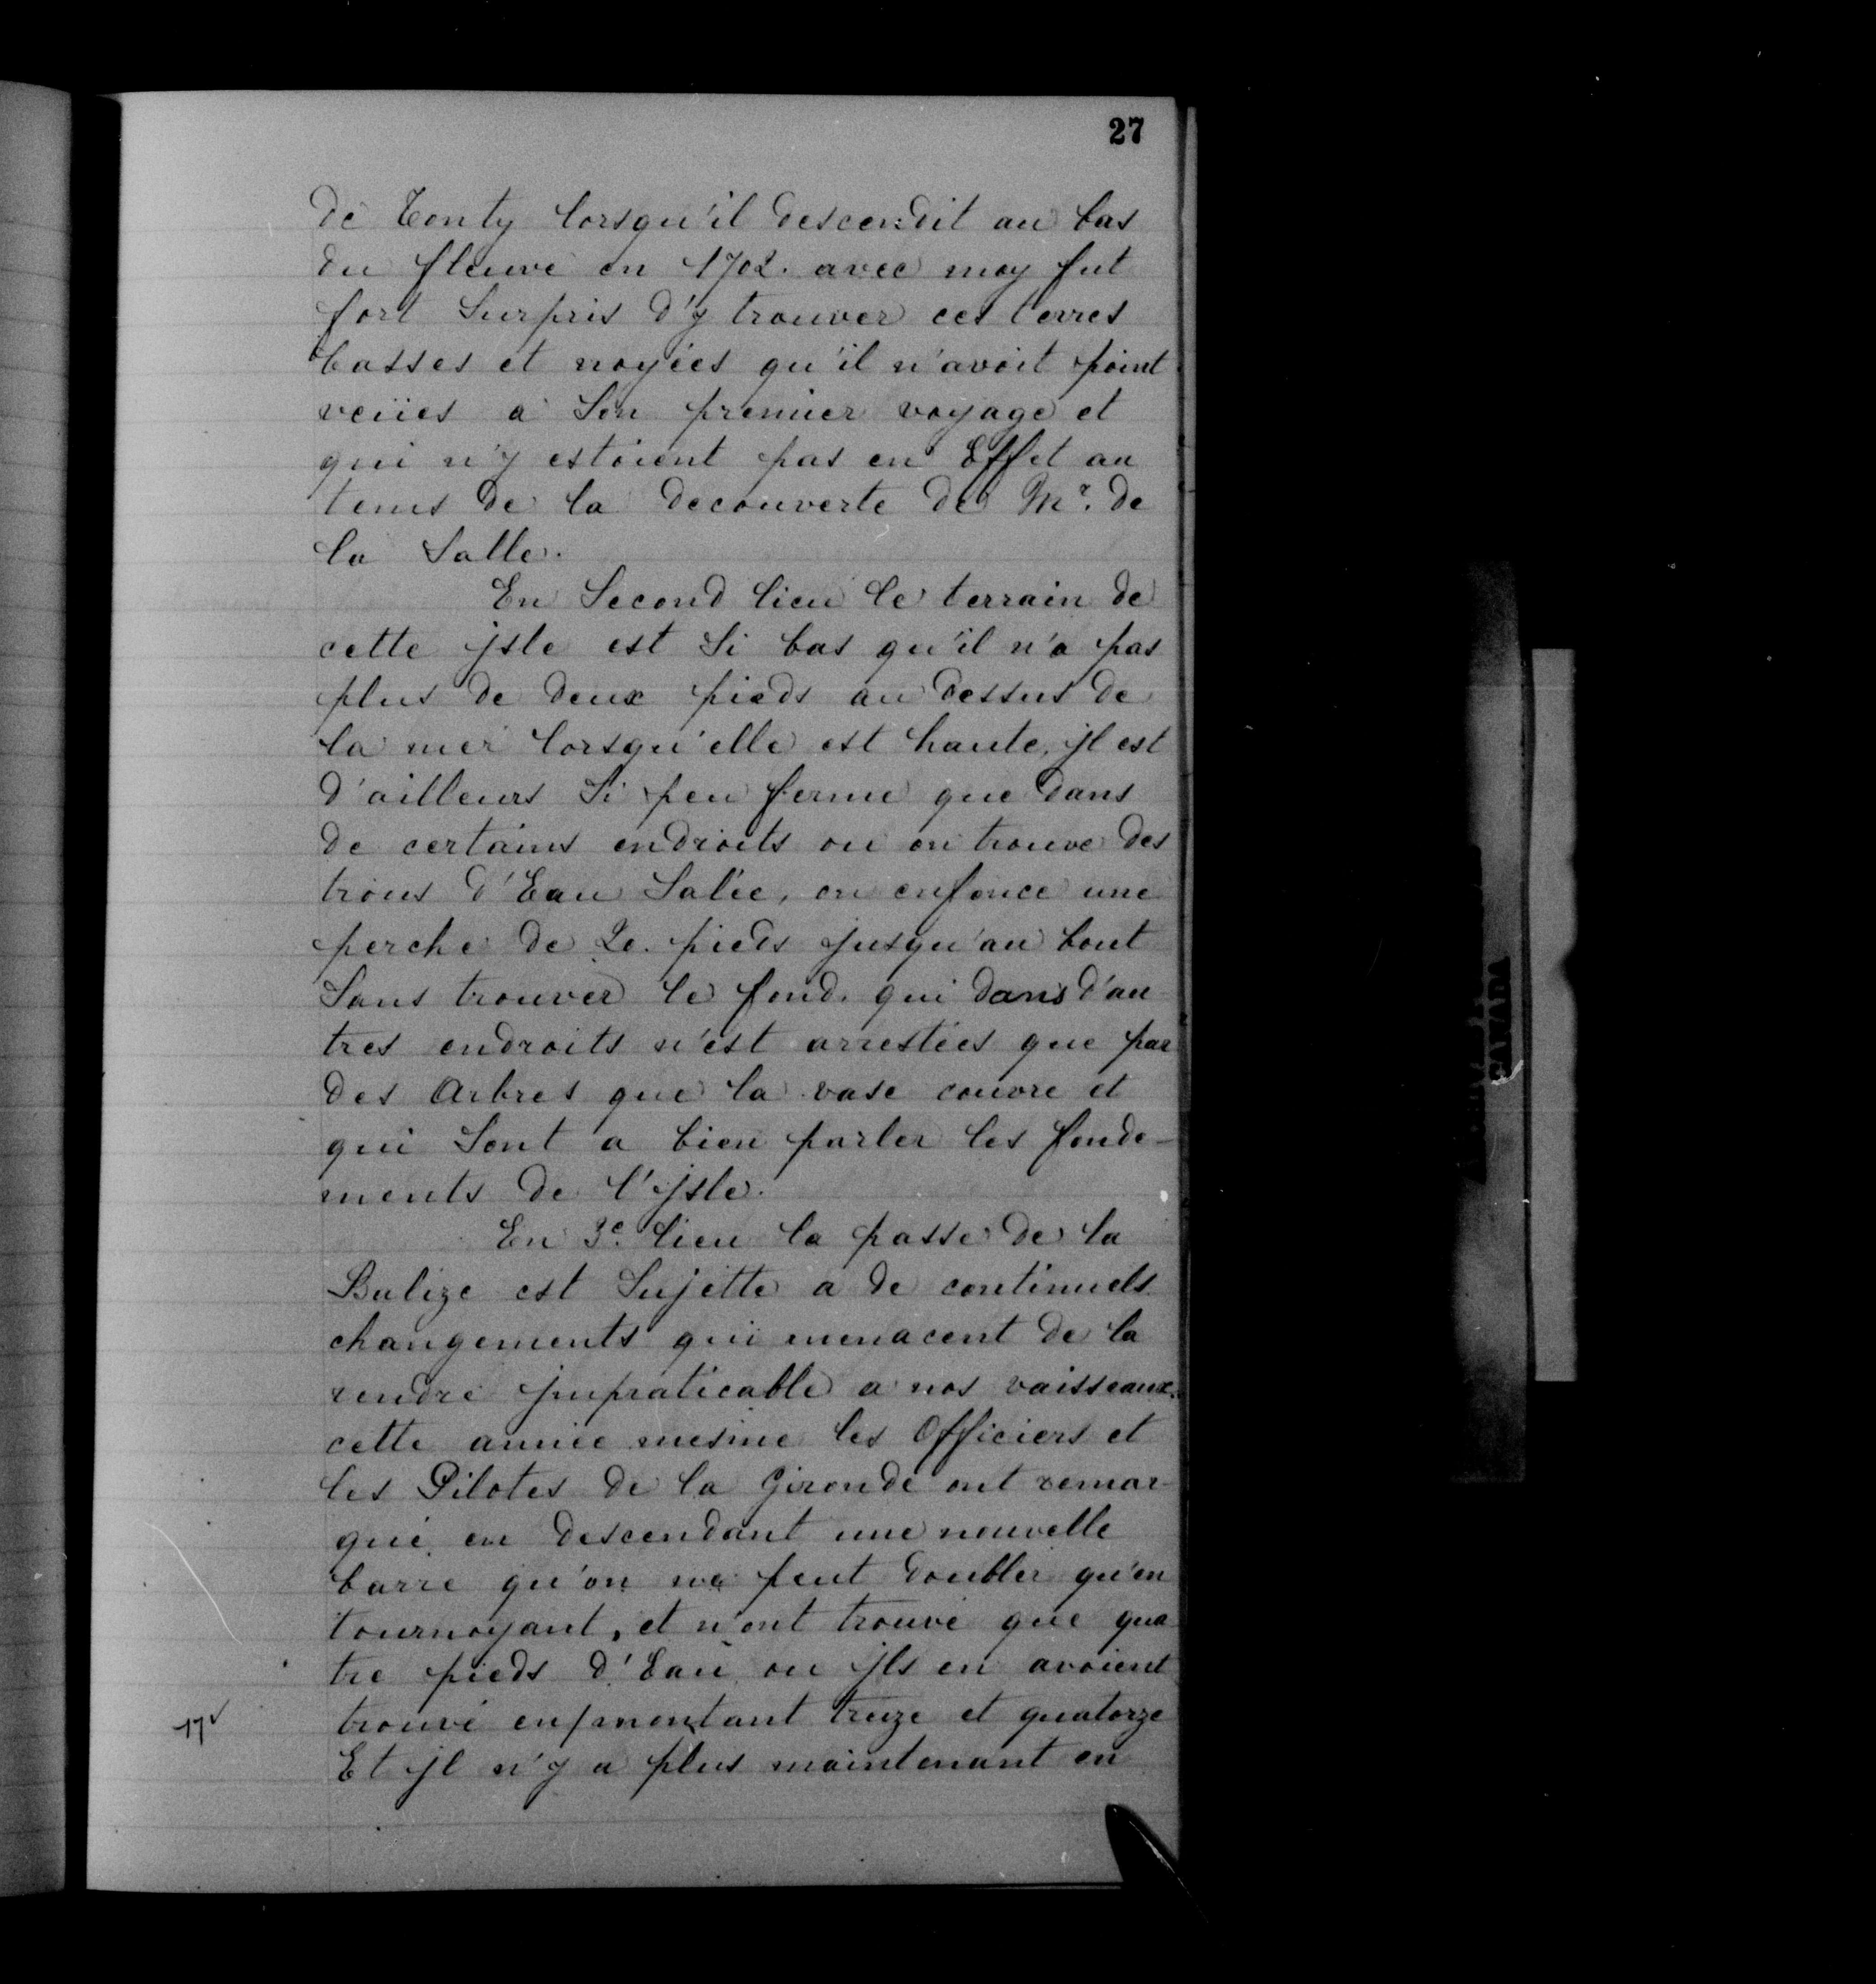 27
de Tonty lorsqu'il descendit au bas
du fleuve en 1702. avec moy fut
fort Surpris d'y trouver ces terres
basses et noyées qu'il n'avoit point
veües a Son premier voyage et
qui n'y estoient pas en Effet au
tems de la decouverte de Mr. de
la Salle.
En Second lieu le terrain de
cette jsle est Si bas qu'il n'a pas
plus de deux pieds au dessus de
la mer lorsqu'elle est haute, jl est
d'ailleurs Si peu ferme que dans
de certains endroits ou on trouve des
trous d'Eau Salée, on enfonce une
perche de 20. pieds jusqu'au bout
Sans trouver le fond. qui dans d'au
tres endroits n'est arrestées que par
des Arbres que la vase couvre et
qui Sont a bien parler les fonde-
ments de l'jsle.
En 3e. lieu la passe de la
Balize est Sujette a de continuels
changements qui menacent de la
rendre jmpraticable a nos vaisseaux.
cette année mesme les Officiers et
les Pilotes de la Gironde ont remar-
qué en descendant une nouvelle
barre qu'on ne peut doubler qu'en
tournoyant, et n'ont trouvé que qua
tre pieds d'Eau ou jls en avoient
17v
trouvé en/montant treize et quatorze
Et jl n'y a plus maintenant en